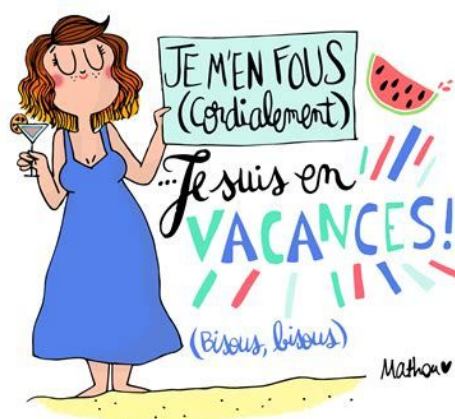 JE M'EN FOUS
(Cordialement)
...Je suis en
VACANCES!
(Bisous, bisous)
Mathou